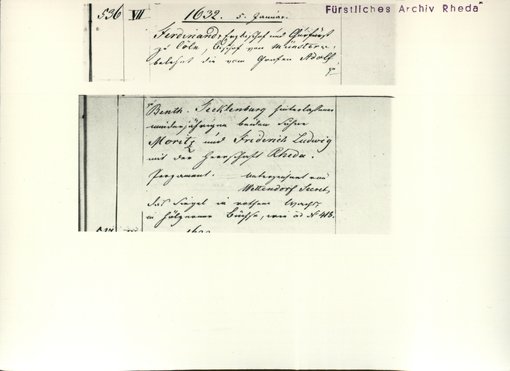 Fürstliches Archiv Rheda
536 VII 1632. 5. Januar.
Ferdinand, Erzbischof und Churfürst
zu Cöln, Bischof von Münster
belehnt die vom Grafen Adolf
v.
Benth. Tecklenburg hinterlassenen
minderjährigen beiden Söhne
Moritz und Friderich Ludwig
mit der Herrschaft Rheda.
Pergament. Unterzeichnet von
Wettendorf Secret.
Das Siegel in rothem Wachs
in hölzerner Büchse, wie ad N 413.